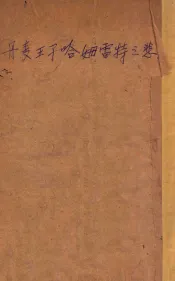 丹麦王子哈姆雷特之悲